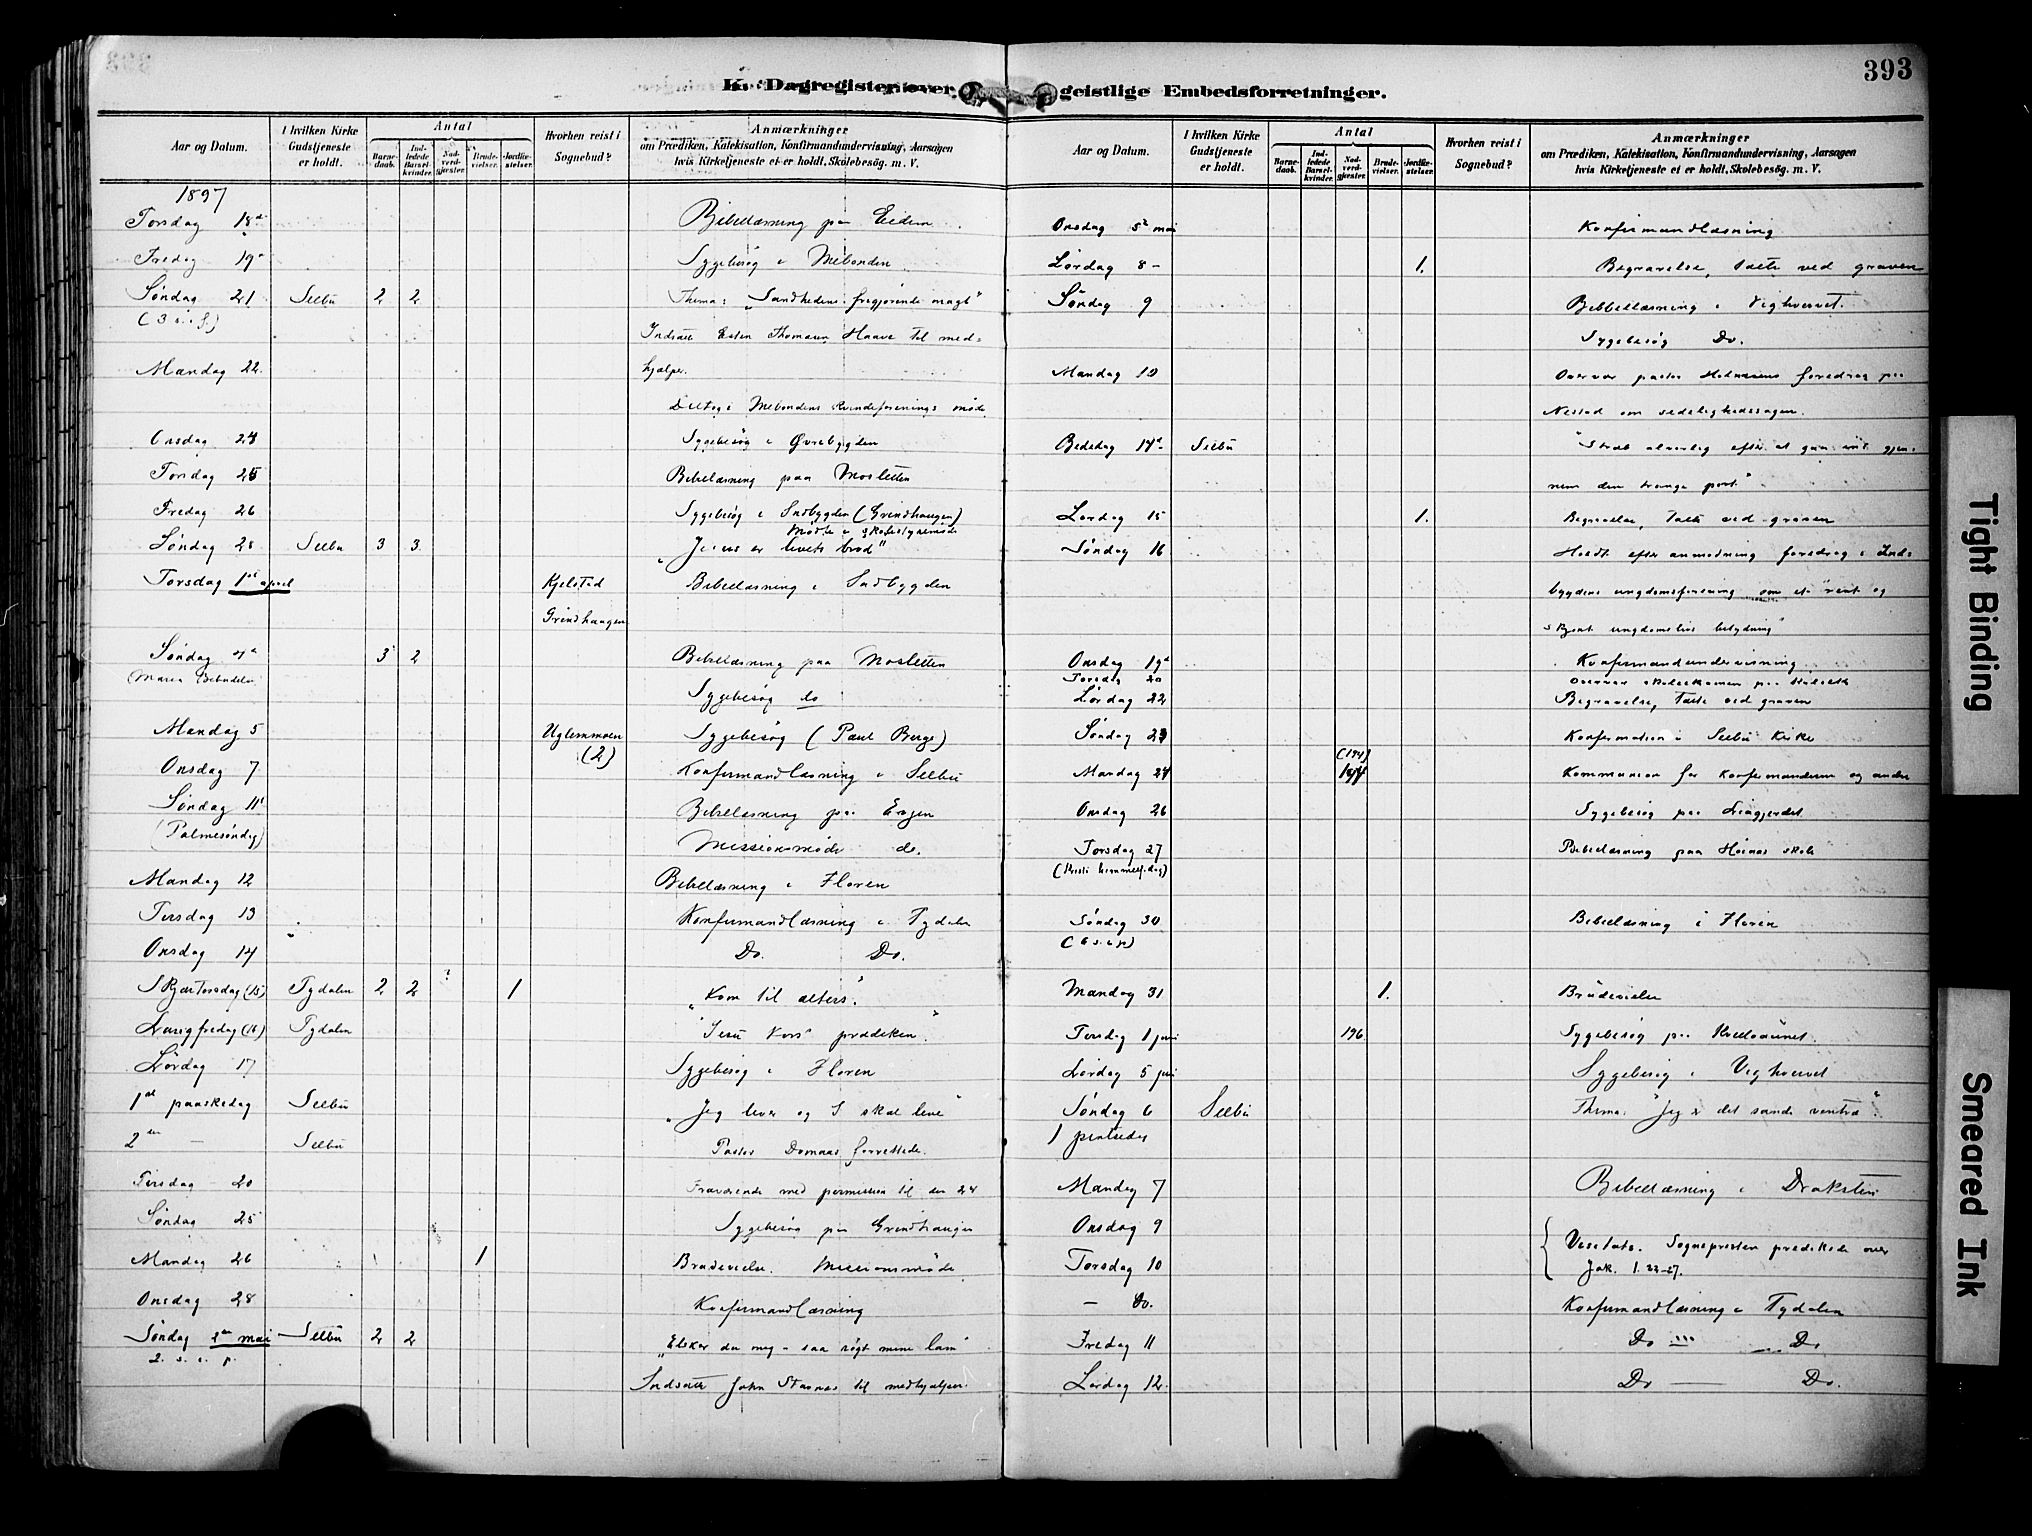 393
K. Dagregister over geistlige Embedsforretninger.
Aar og Datum. I hvilken Kirke Gudstjeneste er holdt. Antal Barnedaab. Indledede Barselkvinder. Nadverdgjæster. Brudevielser. Jordfæstelser. Hvorhen reist i Sognebud? Anmærkninger om Prædiken, Katekisation, Konfirmandundervisning, Aarsagen hvis Kirketjeneste ei er holdt, Skolebesög. m. V.
1897
Torsdag 18de Bibellæsning paa Eidem
Fredag 19de Sygebesøg i Mebonden
Søndag 21 Selbu 2 2 Thema: „Sandhedens frigjørende magt"
(3 s. i f.)
Indsatte Esten Thomasen Haave til med-
Mandag 22 hjælper.
Deltog i Mebondens Kvindeforenings møde
Onsdag 24 Sygebesøg i Øvrebygden
Torsdag 25 Bibellæsning paa Mosletten
Fredag 26 Sygebesøg i Indbygden (Grindhaugen)
Mødte i skolestyremøde
Søndag 28 Selbu 3 3 „Jesus er livets brød"
Torsdag 1ste april Kjelstad Bibellæsning i Indbygden
Grindhaugen
Søndag 4de 3 2 Bibellæsning paa Mosletten
(Maria Bebudelse) Sygebesøg do
Mandag 5 Uglemmoen Sygebesøg (Paul Berge)
(2)
Onsdag 7 Konfirmandlæsning i Selbu
Søndag 11te Bibellæsning paa
(Palmesøndag) Missionsmøde do.
Mandag 12 Bibellæsning i Floren
Tirsdag 13 Konfirmandlæsning i Tydalen
Onsdag 14 Do. Do.
Skjærtorsdag (15) Tydalen 2 2 1 „Kom til alters".
Langfredag (16) Tydalen "Jesu Kors prædiken"
Lørdag 17 Sygebesøg i Floren
1ste paaskedag Selbu „Jeg lever og I skal leve"
2den — Selbu Pastor Domaas forrettede.
Tirsdag 20 Fraværende med permission til den 24
Søndag 25 Sygebesøg paa Grindhaugen
Mandag 26 1 Brudevielse. Missionsmøde
Onsdag 28 Konfirmandlæsning
Søndag 2den mai Selbu 2 2 „Elsker du mig - saa røgt mine lam"
2. s. e. p.
Indsatte John Stamnes til medhjælper.
Aar og Datum. I hvilken Kirke Gudstjeneste er holdt. Antal Barnedaab. Indledede Barselkvinder. Nadverdgjæster. Brudevielser. Jordfæstelser. Hvorhen reist i Sognebud? Anmærkninger om Prædiken, Katekisation, Konfirmandundervisning, Aarsagen hvis Kirketjeneste ei er holdt, Skolebesög. m. V.
Onsdag 5te mai Konfirmandlæsning
Lørdag 8 - 1. Begravelse, talte ved graven
Søndag 9 Bibellæsning i Vighvervet.
Sygebesøg Do.
Mandag 10 Overvar pastor foredrag paa
Nestad om sedelighedssagen.
Bededag 14de Selbu "Stræb alvorlig efter at gaa ind gjen-
nem den trange port."
Lørdag 15 1. Begravelse, Talte ved graven
Søndag 16 Holdt efter anmodning foredrag i Ind-
bygdens ungdomsforening om et "rent og
skjønt ungdomslivs betydning"
Onsdag 19de Konfirmandundervisning
Torsdag 20 Overvar skoleeksamen paa
Lørdag 22 Begravelse, Talte ved graven
Søndag 23 Konfirmation i Selbu Kirke
(194)
Mandag 24 Kommunion for konfirmanderne og andre
Onsdag 26 Sygebesøg paa
Torsdag 27 Bibellæsning paa skole
(Kristi himmelf. dag)
Søndag 30 Bibellæsning i Floren
(6 s. e. p)
Mandag 31 1. Brudevielse
Tirsdag 1 juni 196 Sygebesøg paa
Lørdag 5 juni Sygebesøg i Vighvervet
Søndag 6 Selbu Thema: "Jeg er det sande vintræ"
1 pintsedag
Mandag 7 Bibellæsning i Draksten
Onsdag 9
Torsdag 10 Visitats. Sognepresten prædikede over
Jak. 1. 22-27.
— Do. Konfirmandlæsning i Tydalen
Fredag 11 Do — Do
Lørdag 12. Do — Do.
Tight Binding
Smeared Ink